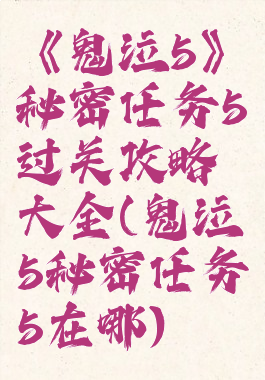 《鬼泣5》
秘密任务5
过关攻略
大全(鬼泣
5秘密任务
5在哪)